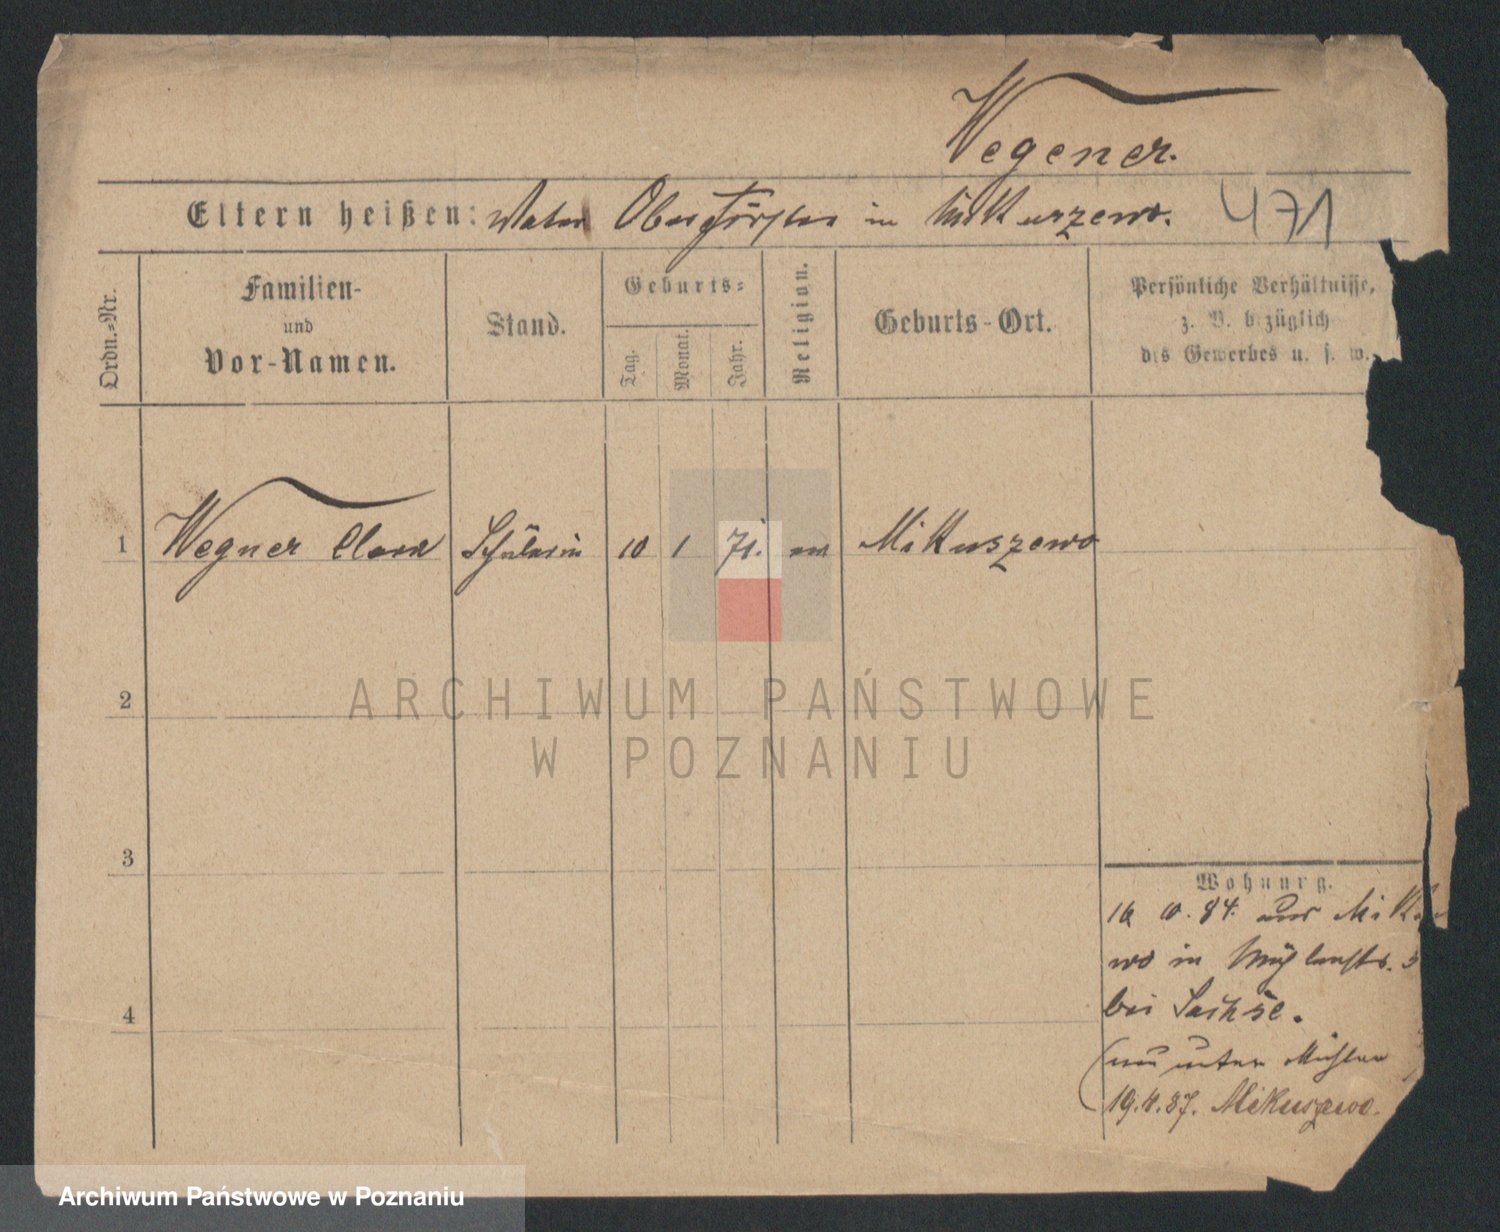 Wegener.
Eltern heißen: Vater Oberförster in Mikuszewo. 471
Ordn.=Nr.
Familien-
und
Vor-Namen.
Stand.
Geburts=
Tag.
Monat.
Jahr.
Religion.
Geburts-Ort.
Persönliche Verhältnisse,
z. B. bezüglich
des Gewerbes u. s. w.
1 Wegner Clara Schülerin 10 1 71. ev Mikuszewo
2
3
4
Wohnung.
84. aus Mik
wo in Mühlenstr. 3
bei Sachse.
19.4.87. Mikuszewo.
ARCHIWUM PAŃSTWOWE
W POZNANIU
Archiwum Państwowe w Poznaniu